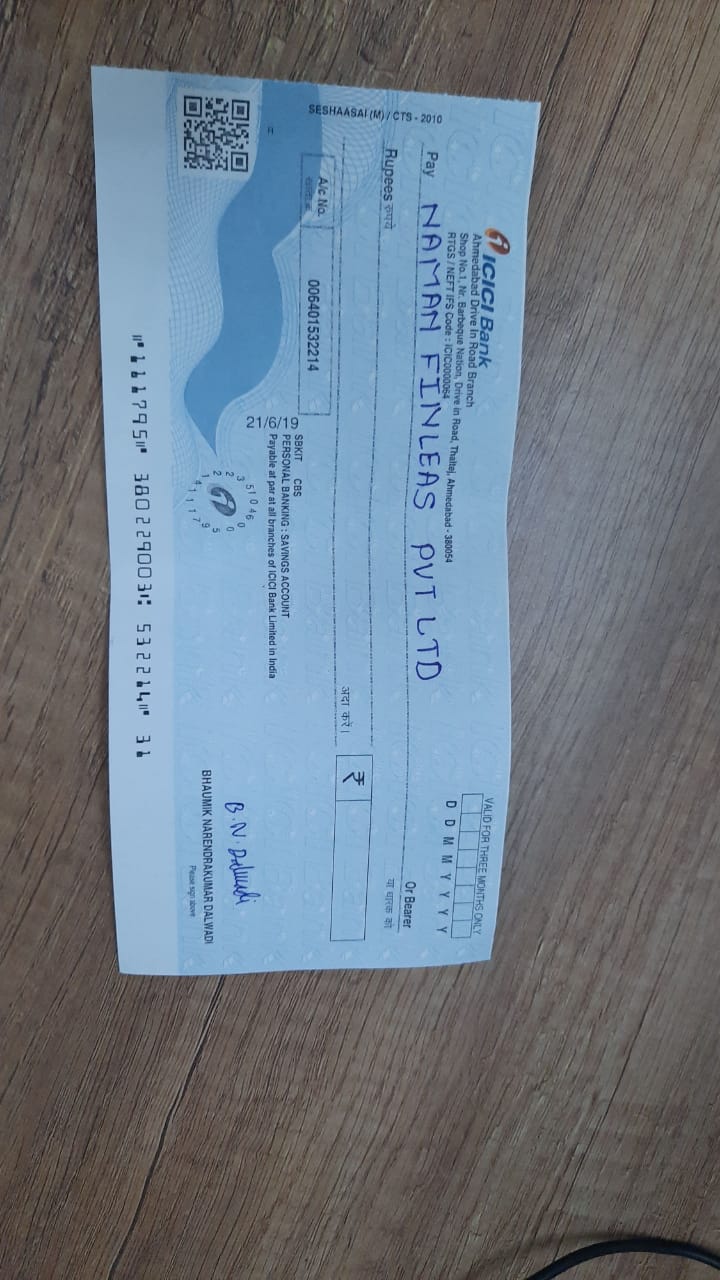 SESHAASAI (M) / CTS - 2010
ICICI Bank
Ahmedabad Drive In Road Branch
Shop No.1, Nr. Barbeque Nation, Drive in Road, Thaltej, Ahmedabad - 380054
RTGS / NEFT IFS Code : ICIC0000064
VALID FOR THREE MONTHS ONLY
D D M M Y Y Y Y
Pay NAMAN FINLEAS PVT LTD
Or Bearer
या धारक को
Rupees रुपये
अदा करें।
₹
A/c No.
006401532214
21/6/19
SBKIT CBS
PERSONAL BANKING : SAVINGS ACCOUNT
Payable at par at all branches of ICICI Bank Limited in India
B.N. Dalwadi
BHAUMIK NARENDRAKUMAR DALWADI
Please sign above
⑈111795⑈ 380229003⑆ 532214⑈ 31